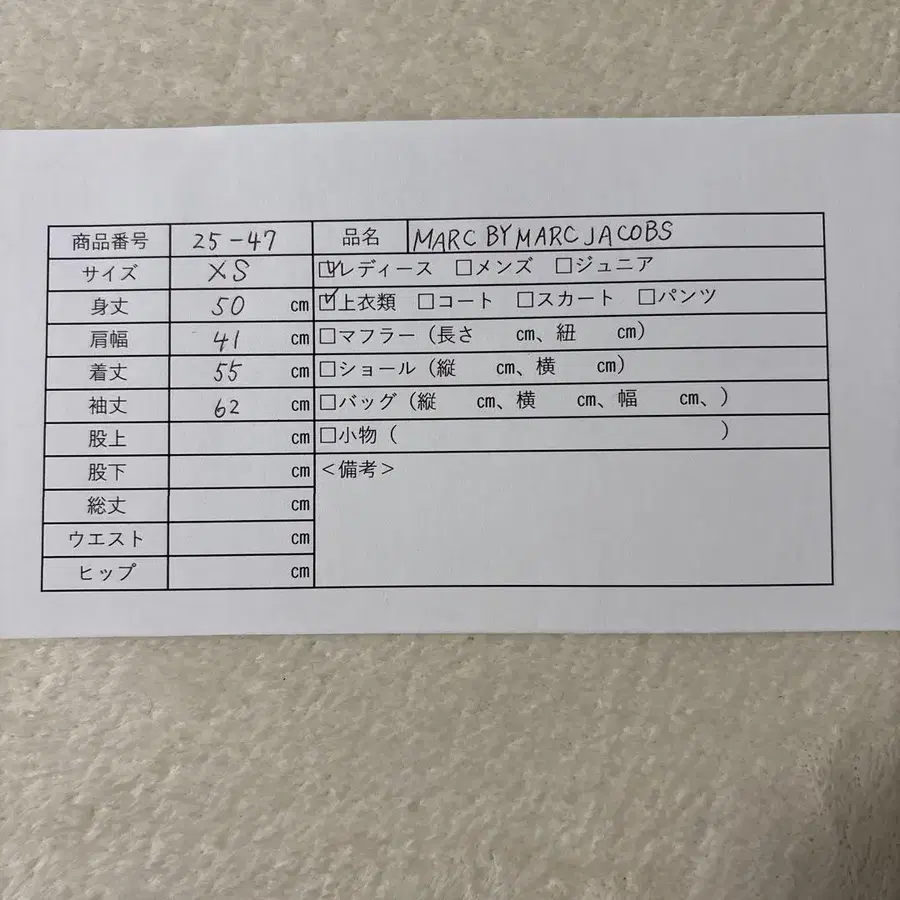 商品番号 25-47 品名 MARC BY MARC JACOBS
サイズ XS ☑レディース □メンズ □ジュニア
身丈 50 cm ☑上衣類 □コート □スカート □パンツ
肩幅 41 cm □マフラー（長さ cm、紐 cm）
着丈 55 cm □ショール（縦 cm、横 cm）
袖丈 62 cm □バッグ（縦 cm、横 cm、幅 cm、）
股上 cm □小物（ ）
股下 cm ＜備考＞
総丈 cm
ウエスト cm
ヒップ cm